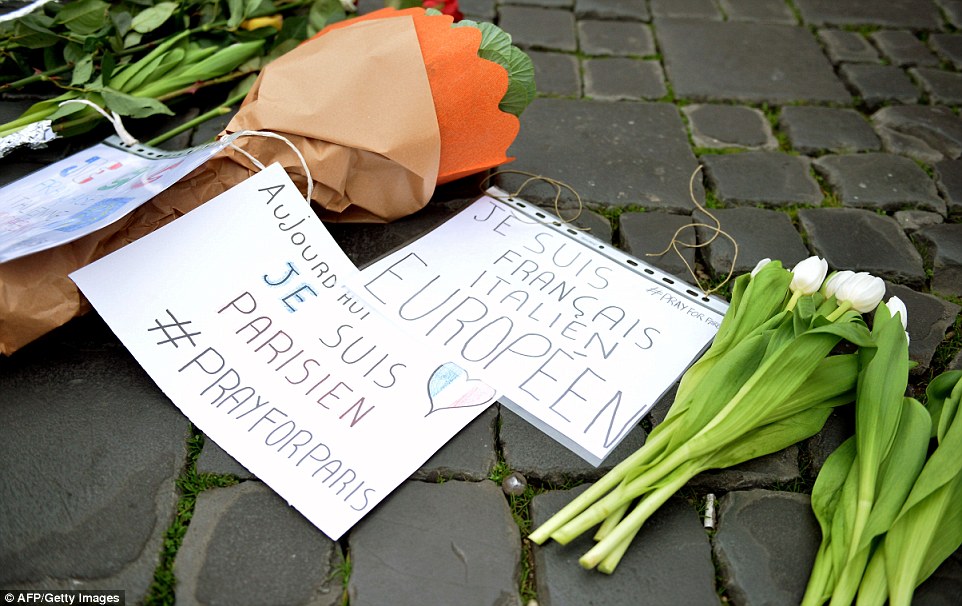 Aujourd'hui
JE SUIS
PARISIEN
#PRAYFORPARIS
JE SUIS
FRANÇAIS
ITALIEN
EUROPÉEN
#PRAY FOR PAR
© AFP/Getty Images